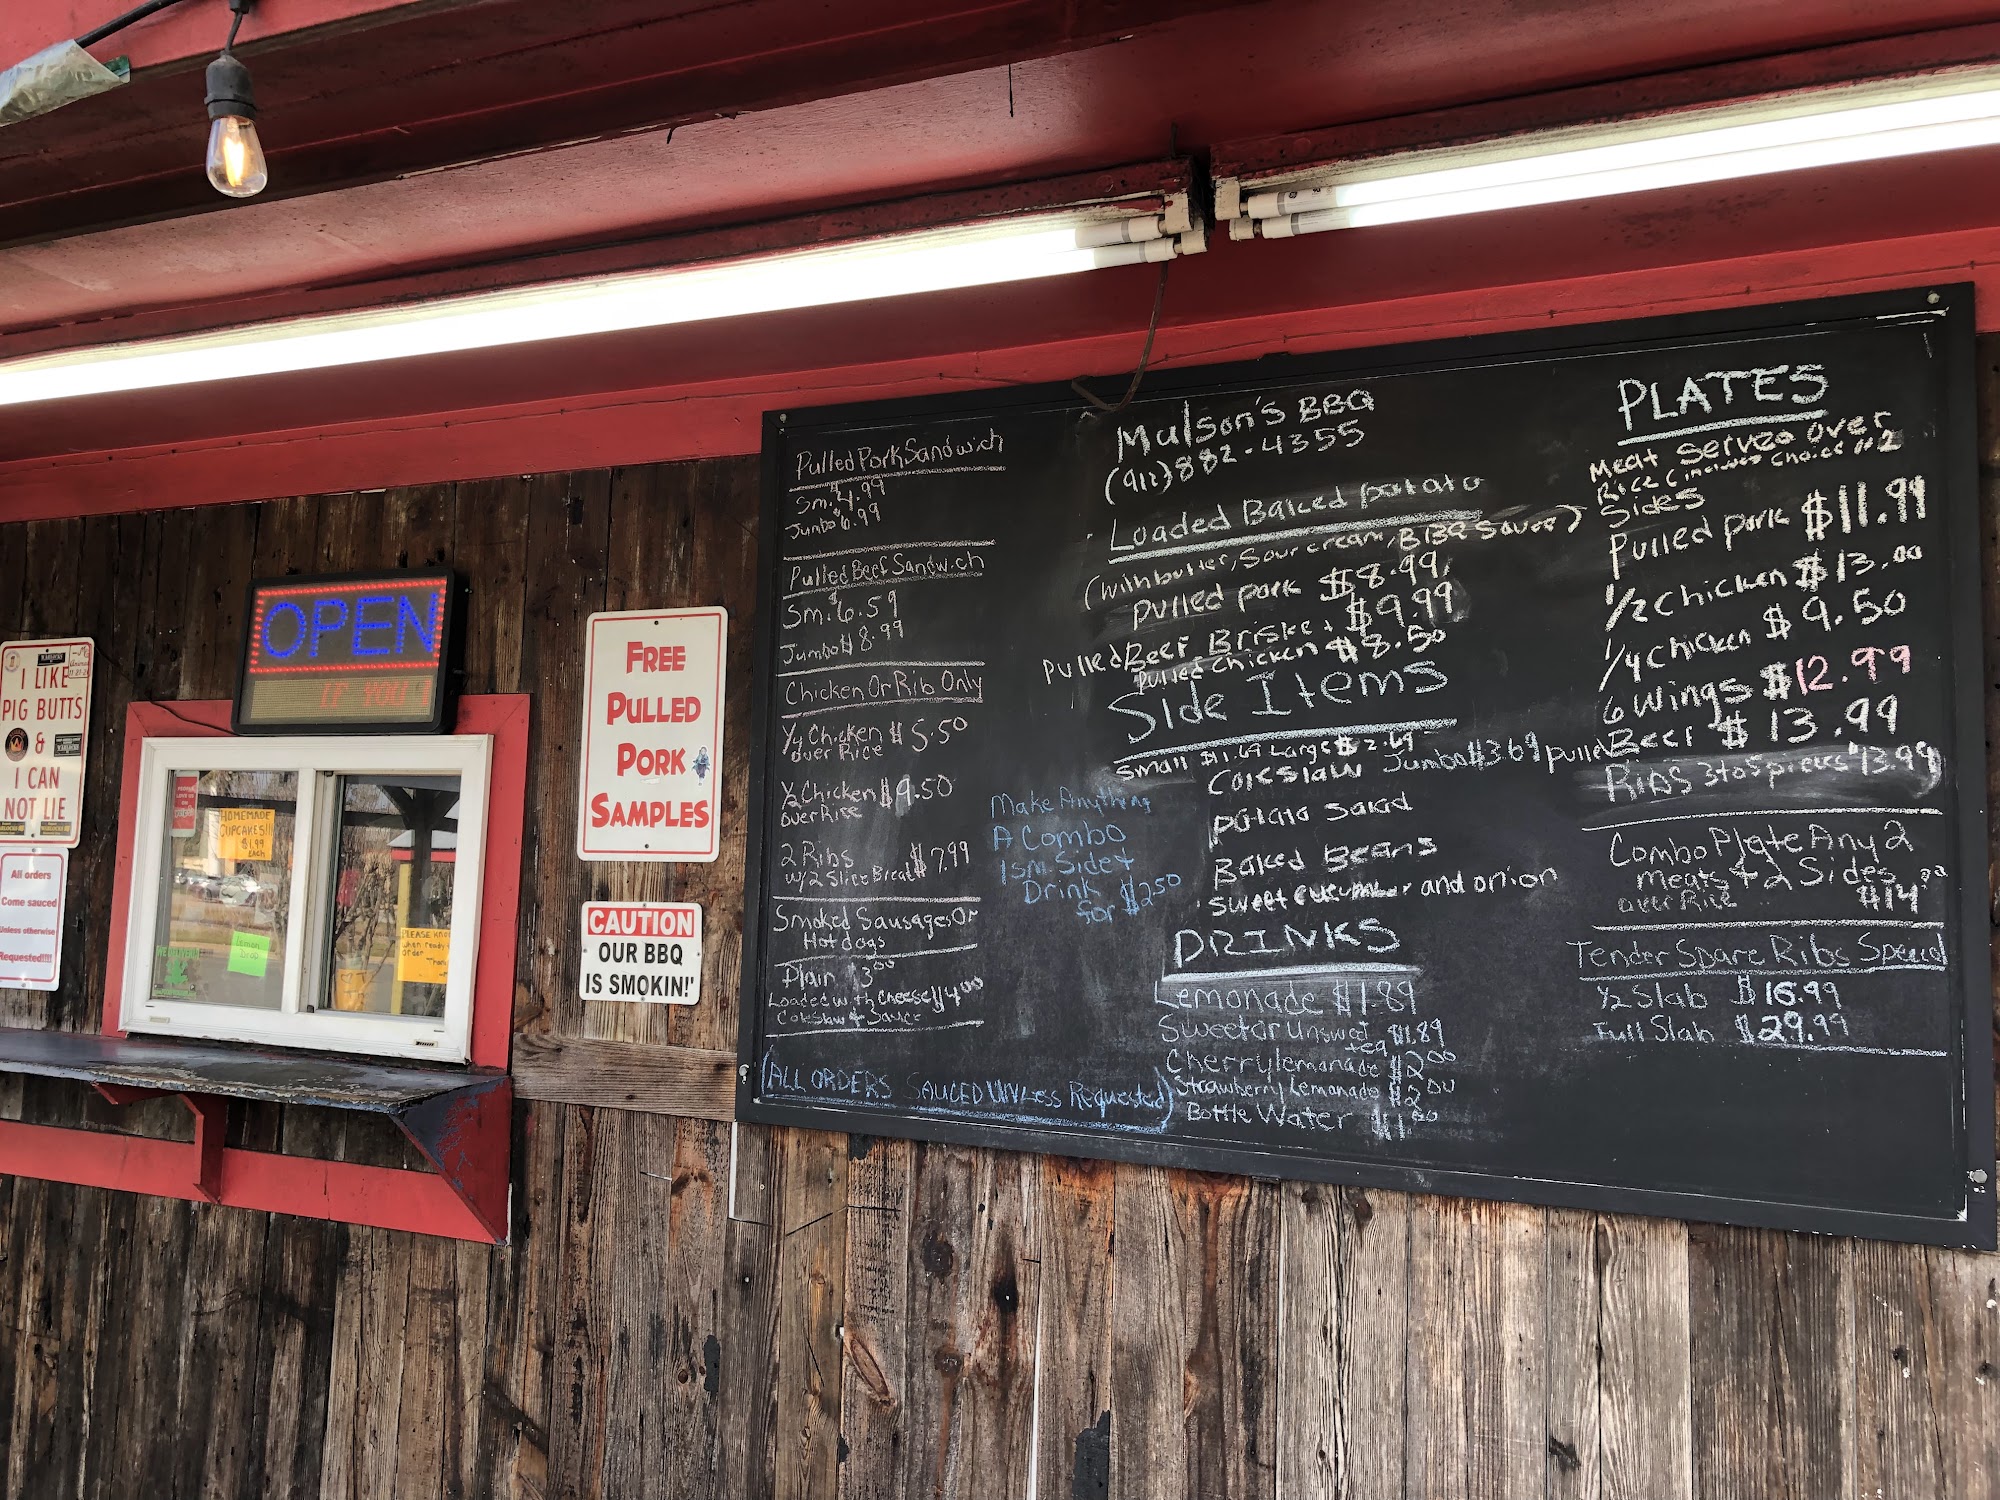 I LIKE
PIG BUTTS
&
I CAN
NOT LIE
All orders
Come sauced
Unless otherwise
Requested!!!!
OPEN
IF YOU
HOMEMADE
CUPCAKES!!!
$1.99
EACH
Lemon
Drop
PLEASE
when ready
order
FREE
PULLED
PORK
SAMPLES
CAUTION
OUR BBQ
IS SMOKIN!'
Pulled Pork Sandwich
Sm. $4.99
Jumbo $6.99
Pulled Beef Sandwich
Sm. $6.59
Jumbo $8.99
Chicken Or Rib Only
1/4 Chicken $5.50
over Rice
1/2 Chicken $9.50
over Rice
2 Ribs $7.99
w/2 Slice Bread
Smoked Sausages Or
Hotdogs
Plain $3.00
Loaded with Cheese $4.00
Coleslaw & Sauce
(ALL ORDERS SAUCED UNLess Requested)
Make Anything
A Combo
1 sm Side &
Drink
for $2.50
Mulson's BBQ
(912) 882-4355
Loaded Baked potato
(with butter, Sour cream, BBQ Sauce)
pulled pork $8.99
Pulled Beef Brisket $9.99
Pulled Chicken $8.50
Side Items
Small $1.69 Large $2.69 Jumbo $3.69
Coleslaw
potato salad
Baked Beans
Sweet cucumber and onion
DRINKS
Lemonade $1.89
Sweet or Unsweet tea $1.89
Cherry lemonade $2.00
Strawberry Lemonade $2.00
Bottle Water $1.50
PLATES
Meat Served Over
Rice (includes Choice of 2
Sides
Pulled pork $11.99
1/2 Chicken $13.00
1/4 Chicken $9.50
6 Wings $12.99
Pulled Beef $13.99
Ribs 3 to 5 pieces $13.99
Combo Plate Any 2
Meats & 2 Sides
over Rice $14.00
Tender Spare Ribs Special
1/2 Slab $16.99
Full Slab $29.99